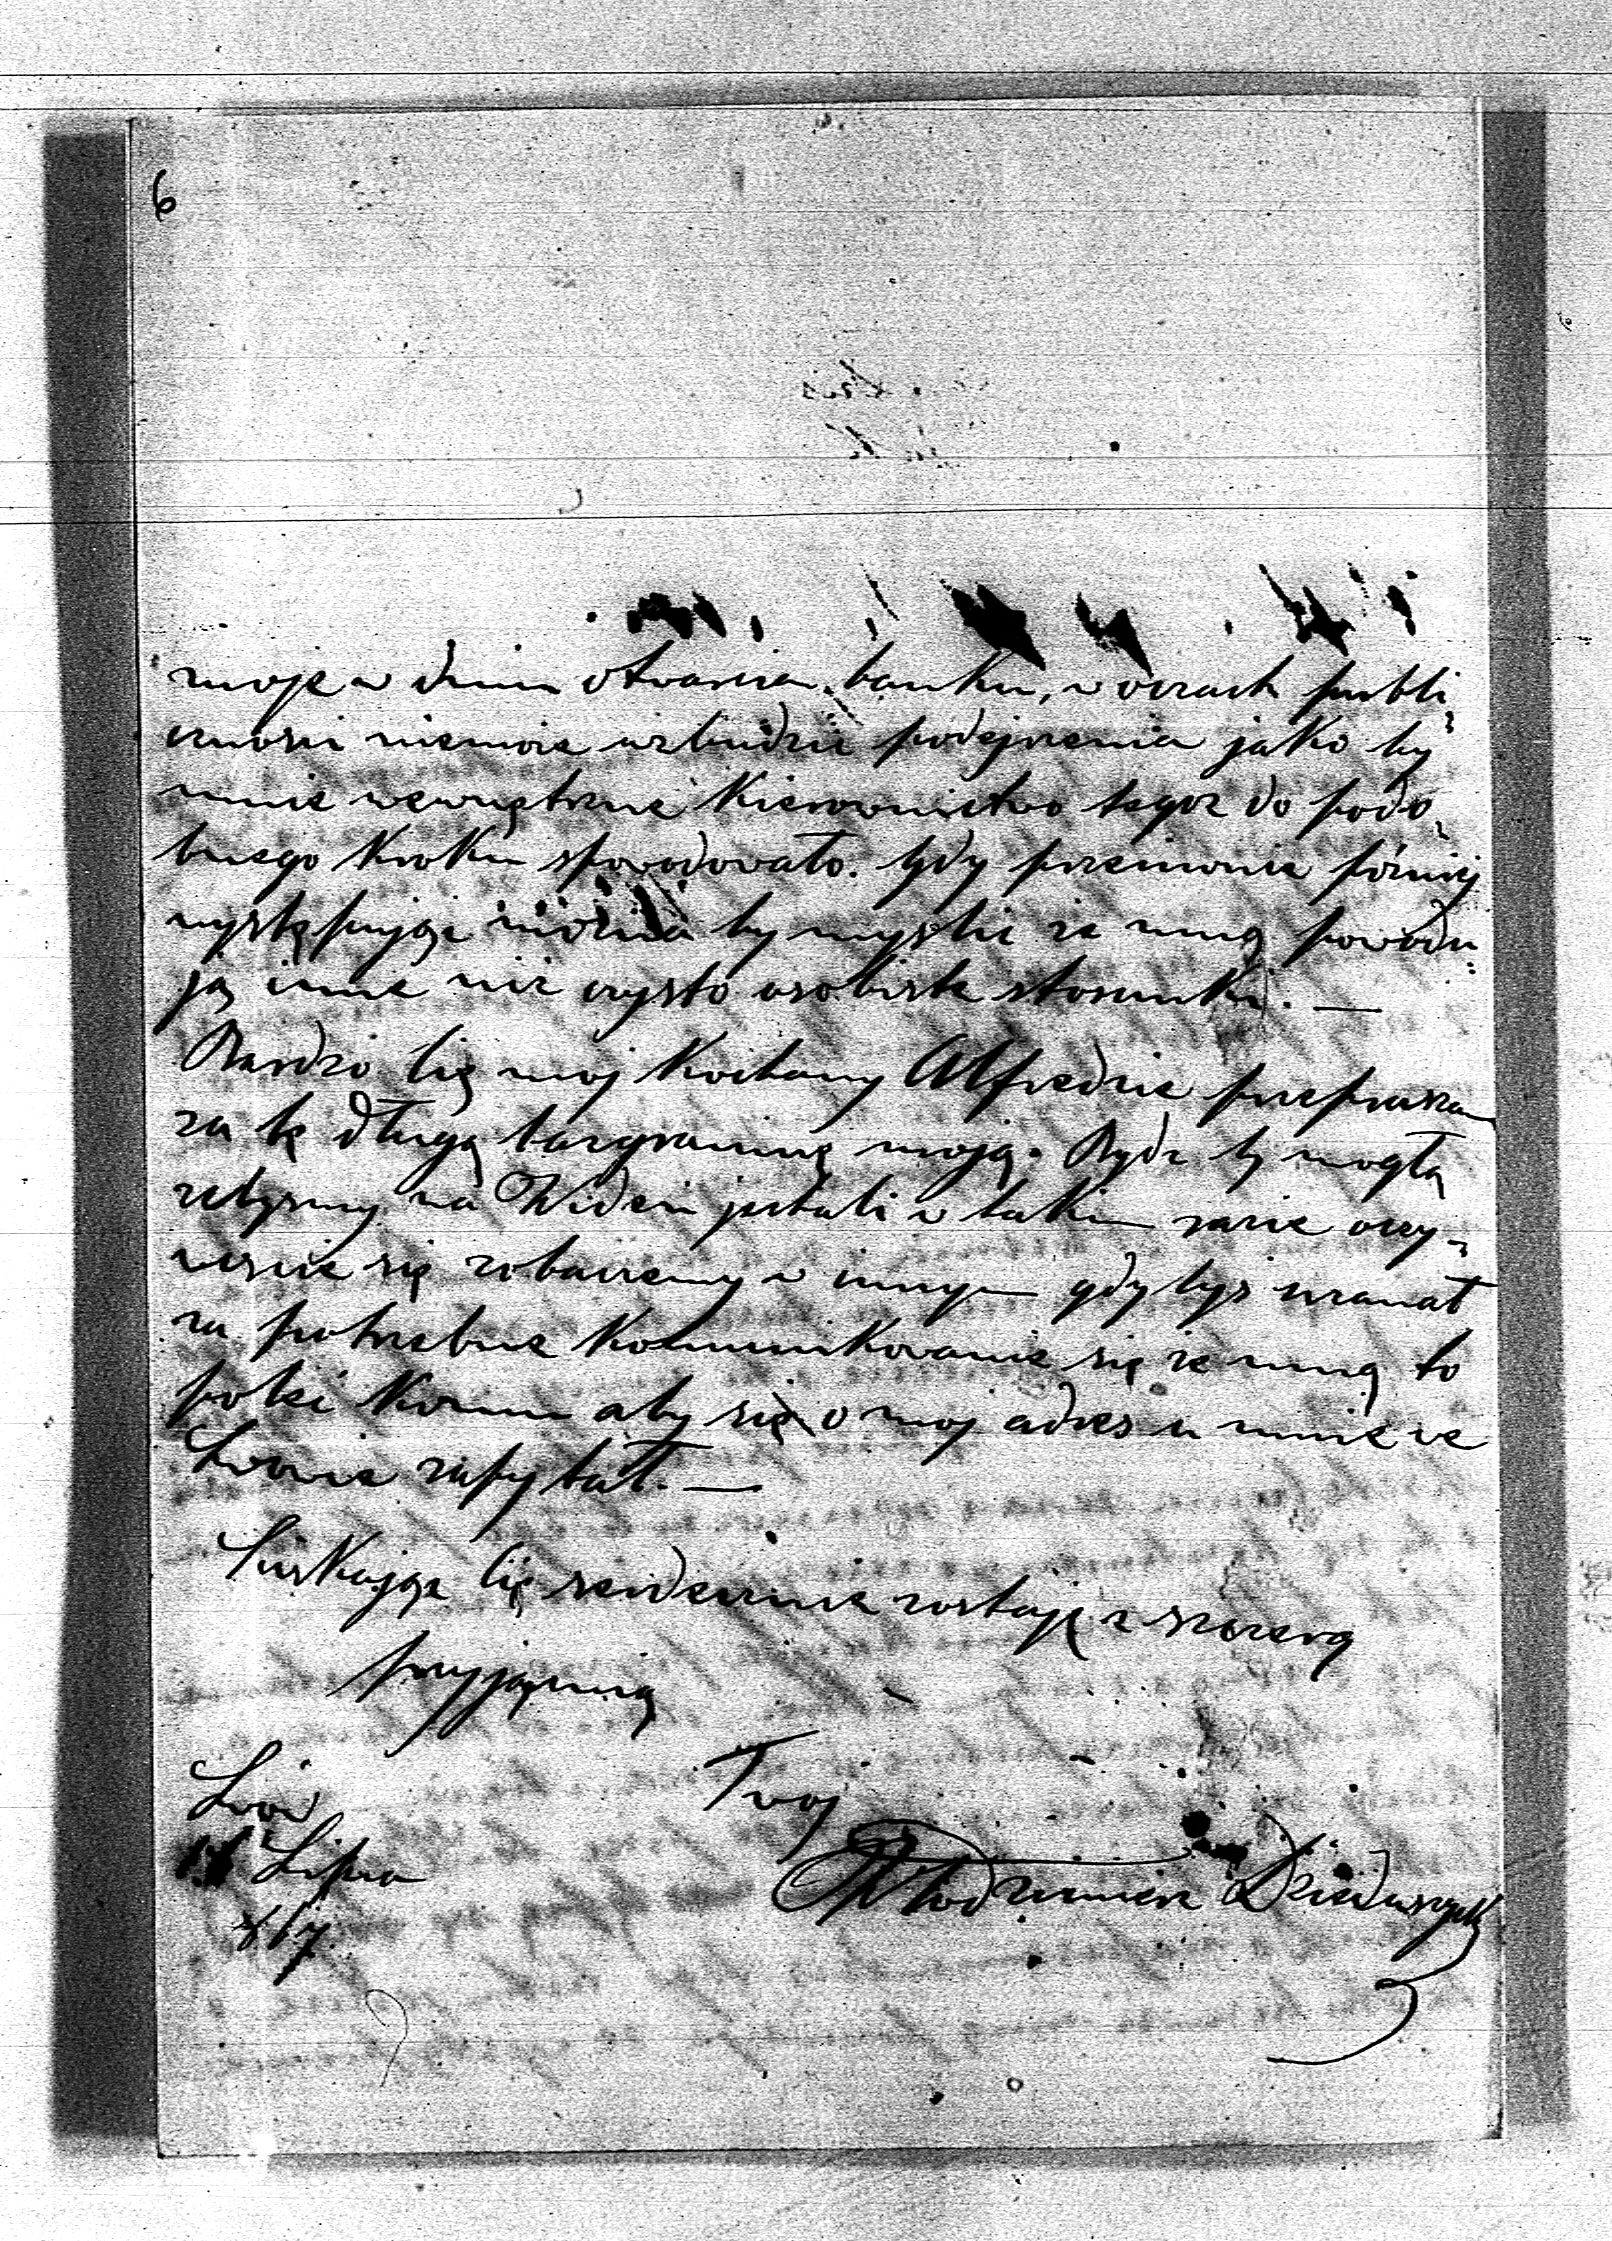 6
moje w dniu otwarcia banku, w oczach publi„
czności niemoże wzbudzić podejrzenia jako by
mnie wewnętrzne Kierownictwo tegoż do podo„
bnego Kroku spowodowało. Gdy przeciwnie później
występując można by myślić że mną powodu„
ją inne niż czysto osobiste stosunki. —
Bardzo Cię moj Kochany Alfredzie przepraszam
za tę długą bazgraninę moją.
na Wideń jeżeli w takim razie oczy„
wiście się zobaczemy w innym gdybyś uznał
za potrzebne Kommunikowanie się ze mną to
poleć Komu aby się o moj adres u mnie we
Lwowie zapytał. —
Ściskając Cię serdecznie zostaję z szczerą
przyjaźnią
Twoj
Włodzimierz Dzieduszycki
Lwów
Lipca
867